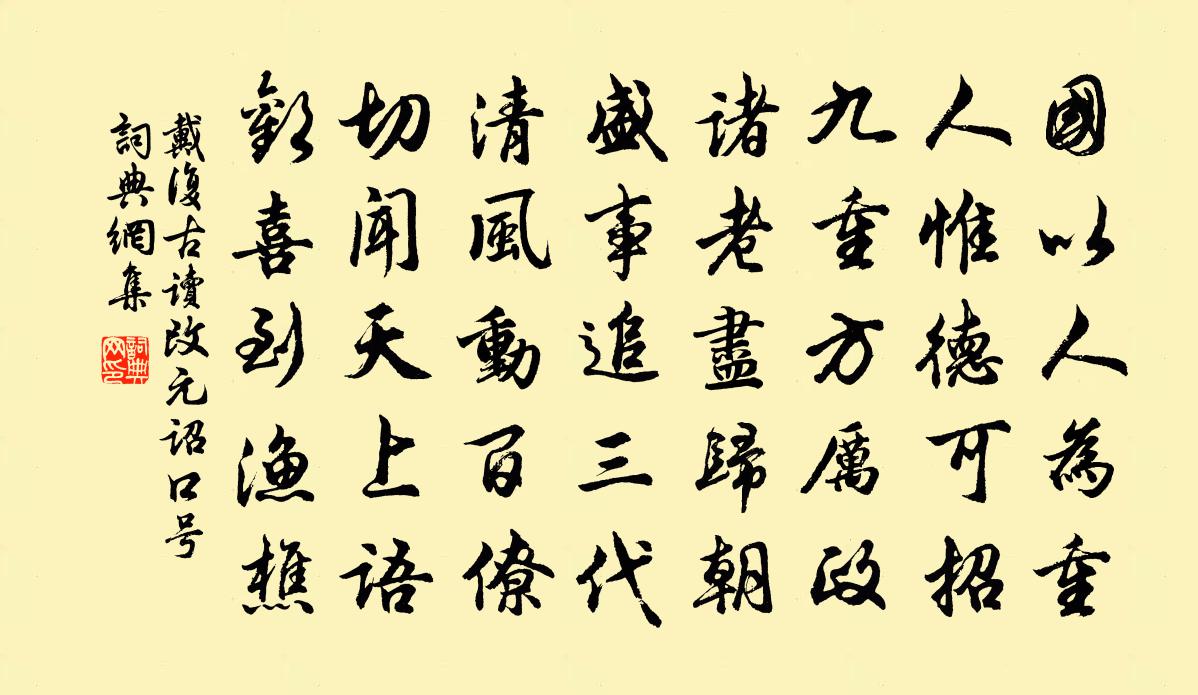 國以人為重
人惟德可招
九重方厲政
諸老盡歸朝
盛事追三代
清風動百僚
切聞天上語
歡喜到漁樵
戴復古讀改元詔口号
詞典網集
詞典网印